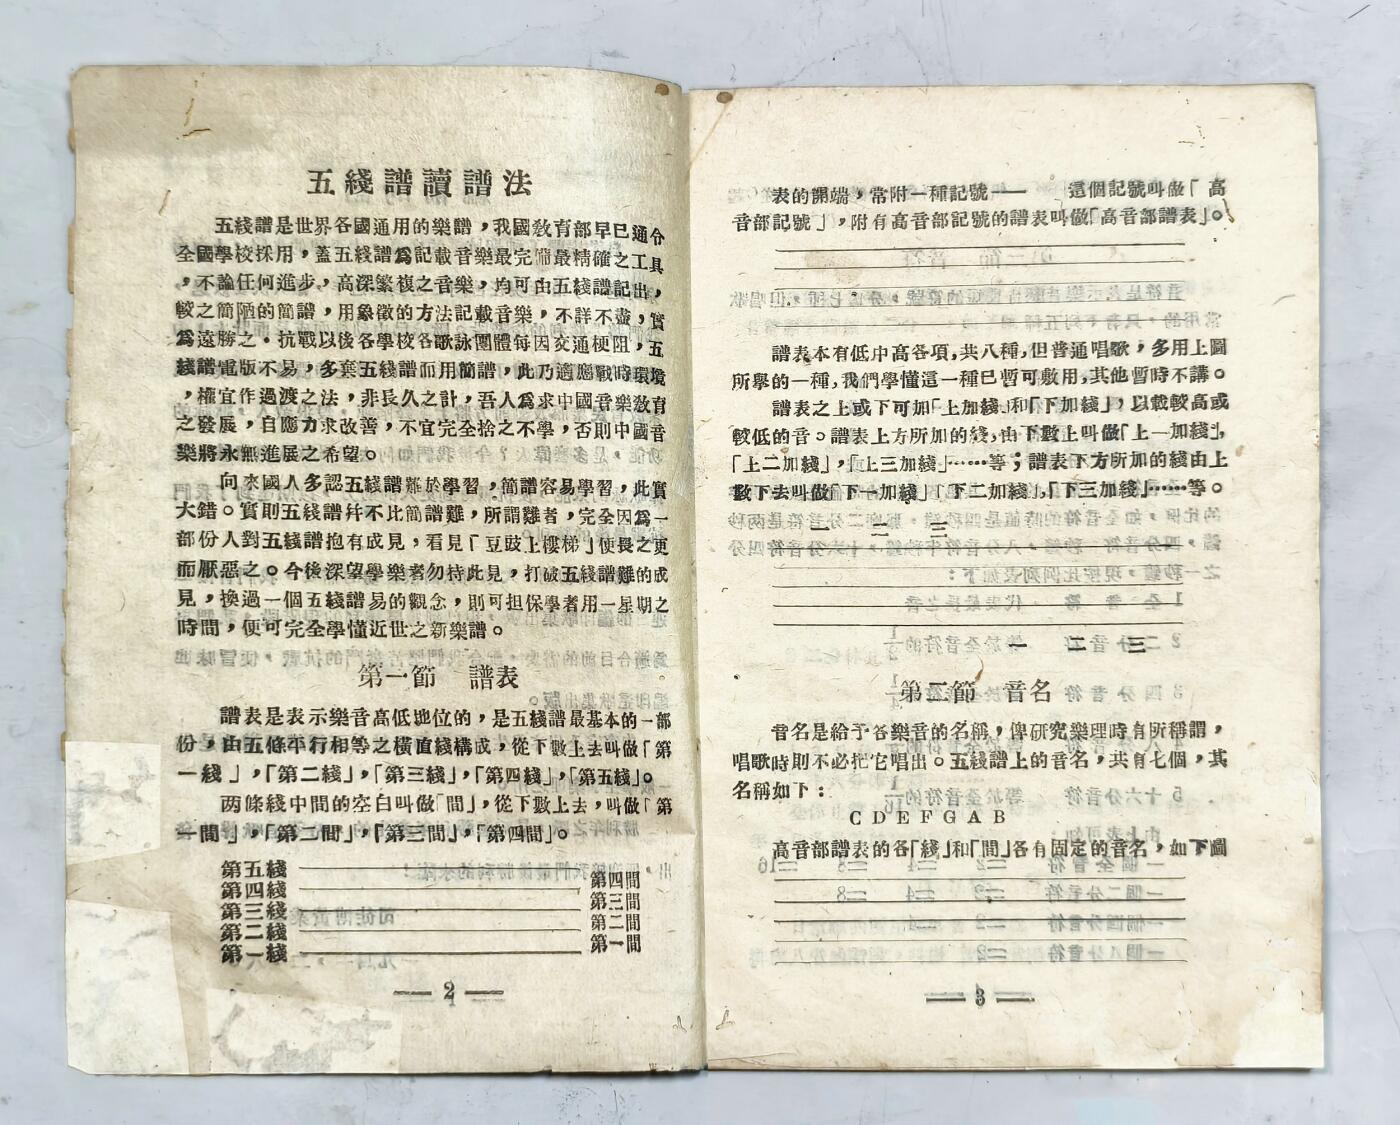 五綫譜讀譜法
五綫譜是世界各國通用的樂譜，我國敎育部早已通令
全國學校採用，蓋五綫譜爲記載音樂最完備最精確之工具
，不論任何進步，高深繁複之音樂，均可由五綫譜記出，
較之簡陋的簡譜，用象徵的方法記載音樂，不詳不盡，實
爲遠勝之。抗戰以後各學校各歌詠團體每因交通梗阻，五
綫譜電版不易，多棄五綫譜而用簡譜，此乃適應戰時環境
，權宜作過渡之法，非長久之計，吾人爲求中國音樂敎育
之發展，自應力求改善，不宜完全捨之不學，否則中國音
樂將永無進展之希望。
向來國人多認五綫譜難於學習，簡譜容易學習，此實
大錯。實則五綫譜幷不比簡譜難，所謂難者，完全因爲一
部份人對五綫譜抱有成見，看見「豆豉上樓梯」便畏之更
而厭惡之。今後深望學樂者勿持此見，打破五綫譜難的成
見，換過一個五綫譜易的觀念，則可担保學者用一星期之
時間，便可完全學懂近世之新樂譜。
第一節　譜表
譜表是表示樂音高低地位的，是五綫譜最基本的一部
份，由五條平行相等之橫直綫構成，從下數上去叫做「第
一綫」，「第二綫」，「第三綫」，「第四綫」，「第五綫」。
两條綫中間的空白叫做「間」，從下數上去，叫做「第
一間」，「第二間」，「第三間」，「第四間」。
第五綫
第四綫
第三綫
第二綫
第一綫
第四間
第三間
第二間
第一間
2
表的開端，常附一種記號——　這個記號叫做「高
音部記號」，附有高音部記號的譜表叫做「高音部譜表」。
譜表本有低中高各項，共八種，但普通唱歌，多用上圖
所舉的一種，我們學懂這一種已暫可敷用，其他暫時不講。
譜表之上或下可加「上加綫」和「下加綫」，以載較高或
較低的音。譜表上方所加的綫，由下數上叫做「上一加綫」，
「上二加綫」，「上三加綫」……等；譜表下方所加的綫由上
數下去叫做「下一加綫」「下二加綫」，「下三加綫」……等。
一　二　三
一　二　三
第二節　音名
音名是給予各樂音的名稱，俾研究樂理時有所稱謂，
唱歌時則不必把它唱出。五綫譜上的音名，共有七個，其
名稱如下：
C D E F G A B
高音部譜表的各「綫」和「間」各有固定的音名，如下圖
3